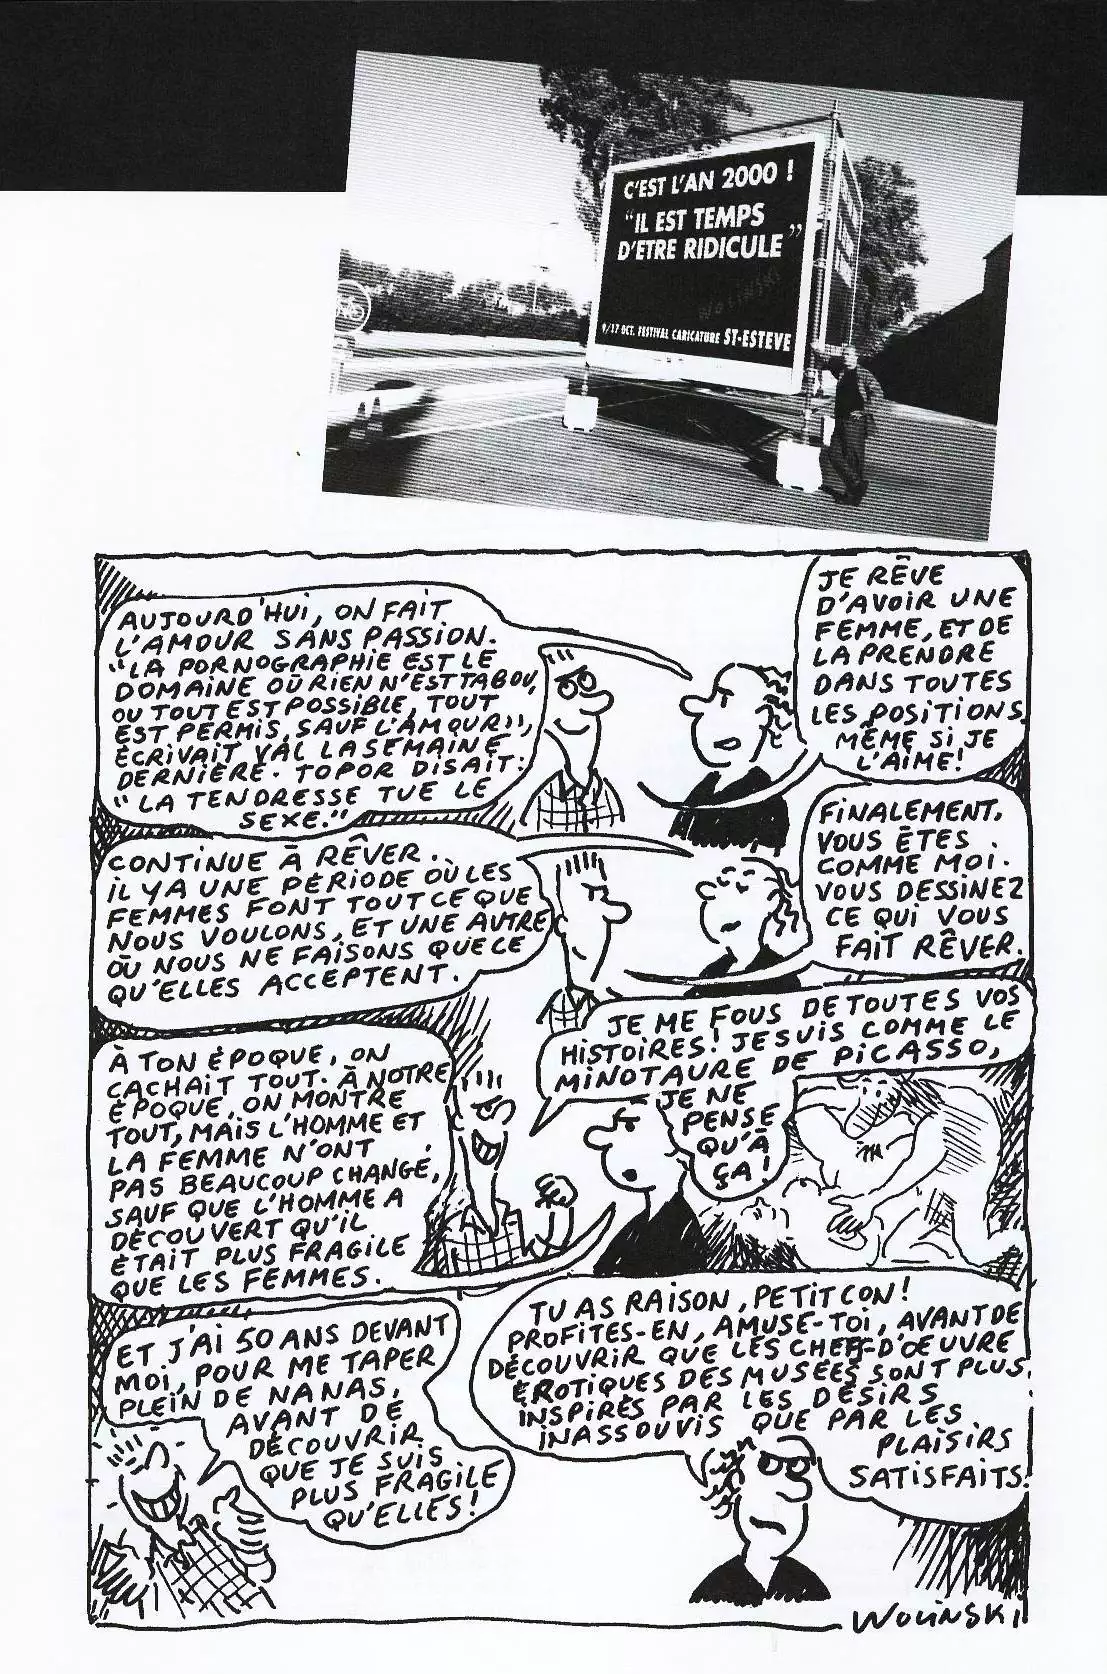 C'EST L'AN 2000 !
"IL EST TEMPS
D'ETRE RIDICULE"
WOLINSKI
9/17 OCT. FESTIVAL CARICATURE ST-ESTEVE
AUJOURD'HUI, ON FAIT
L'AMOUR SANS PASSION.
"LA PORNOGRAPHIE EST LE
DOMAINE OÙ RIEN N'EST TABOU,
OU TOUT EST POSSIBLE, TOUT
EST PERMIS, SAUF L'AMOUR",
ÉCRIVAIT VAL LA SEMAINE
DERNIÈRE. TOPOR DISAIT:
"LA TENDRESSE TUE LE
SEXE."
JE RÊVE
D'AVOIR UNE
FEMME, ET DE
LA PRENDRE
DANS TOUTES
LES POSITIONS,
MÊME SI JE
L'AIME!
CONTINUE À RÊVER.
IL Y A UNE PÉRIODE OÙ LES
FEMMES FONT TOUT CE QUE
NOUS VOULONS, ET UNE AUTRE
OÙ NOUS NE FAISONS QUE CE
QU'ELLES ACCEPTENT.
FINALEMENT,
VOUS ÊTES
COMME MOI.
VOUS DESSINEZ
CE QUI VOUS
FAIT RÊVER.
JE ME FOUS DE TOUTES VOS
HISTOIRES! JE SUIS COMME LE
MINOTAURE DE PICASSO,
JE NE
PENSE
QU'À
ÇA!
À TON ÉPOQUE, ON
CACHAIT TOUT. À NOTRE
ÉPOQUE, ON MONTRE
TOUT, MAIS L'HOMME ET
LA FEMME N'ONT
PAS BEAUCOUP CHANGÉ,
SAUF QUE L'HOMME A
DÉCOUVERT QU'IL
ÉTAIT PLUS FRAGILE
QUE LES FEMMES.
ET J'AI 50 ANS DEVANT
MOI, POUR ME TAPER
PLEIN DE NANAS,
AVANT DE
DÉCOUVRIR
QUE JE SUIS
PLUS FRAGILE
QU'ELLES!
TU AS RAISON, PETIT CON!
PROFITES-EN, AMUSE-TOI, AVANT DE
DÉCOUVRIR QUE LES CHEFS-D'OEUVRE
ÉROTIQUES DES MUSÉES SONT PLUS
INSPIRÉS PAR LES DÉSIRS
INASSOUVIS QUE PAR LES
PLAISIRS
SATISFAITS!
WOLINSKI